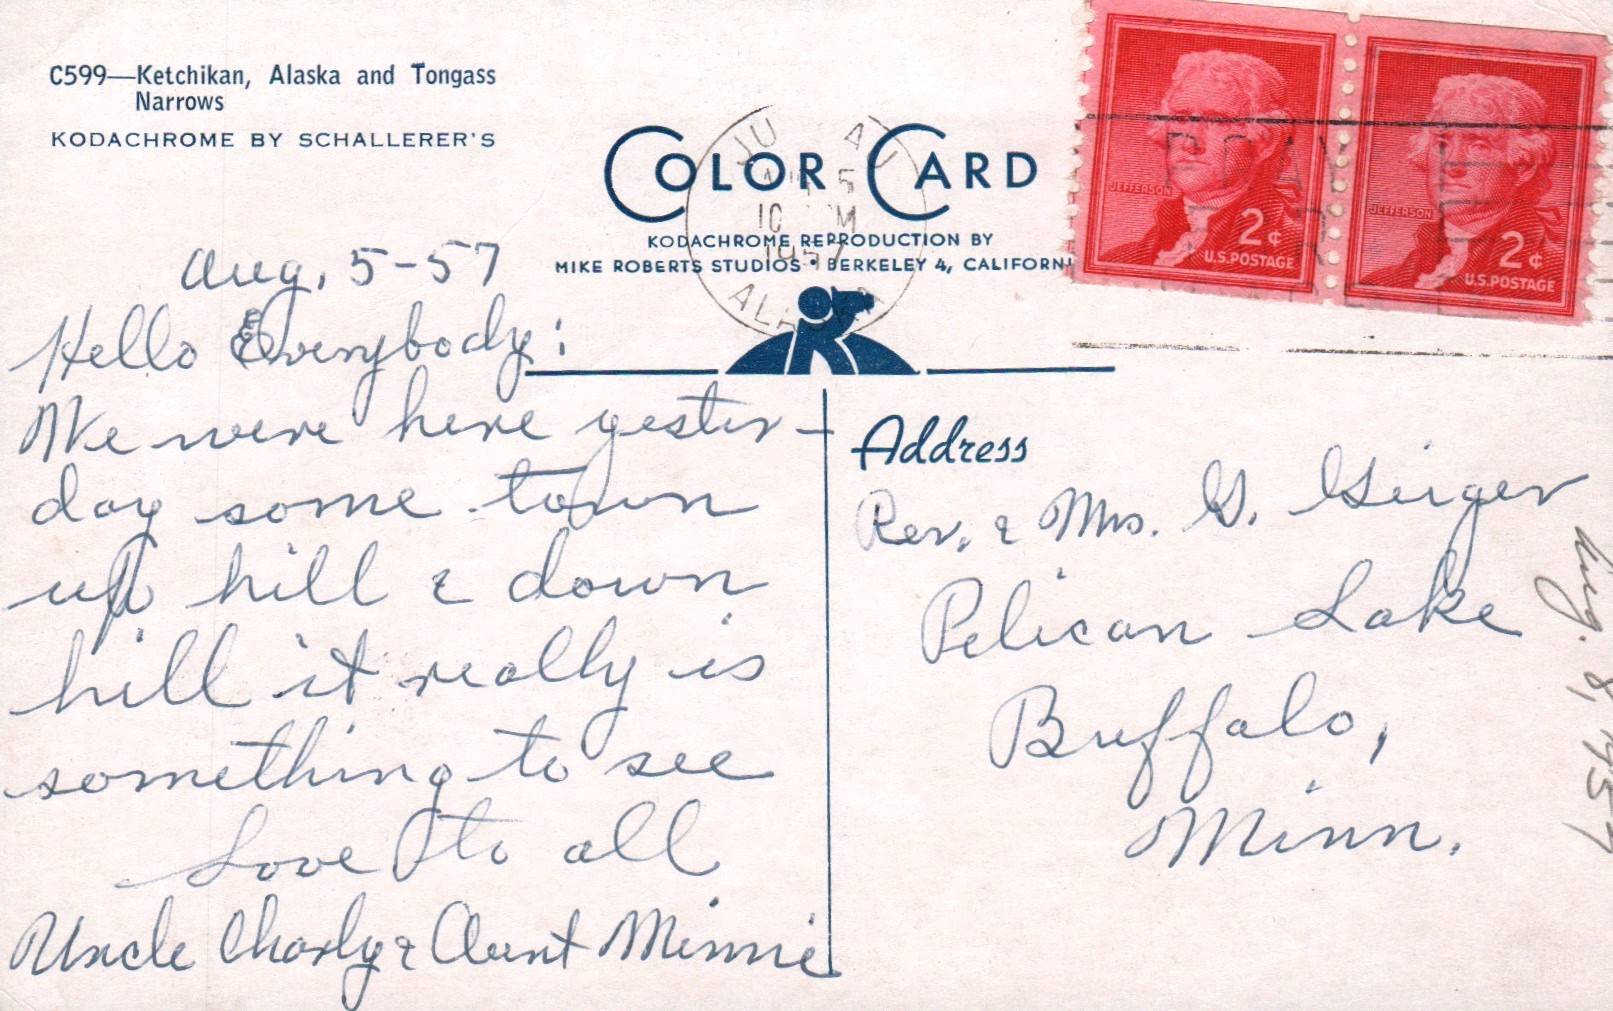 C599—Ketchikan, Alaska and Tongass
Narrows
KODACHROME BY SCHALLERER'S
COLOR CARD
KODACHROME REPRODUCTION BY
MIKE ROBERTS STUDIOS • BERKELEY 4, CALIFORNI
JU AU
5
10 M
1957
ALASKA
PRAY
JEFFERSON
2¢
U.S.POSTAGE
JEFFERSON
2¢
U.S.POSTAGE
Aug, 5-57
Hello Everybody:
We were here yester-
day some town
up hill & down
hill it really is
something to see
Love to all
Uncle Charly & Aunt Minnie
Address
Rev. & Mrs. G.
Pelican Lake
Buffalo,
Minn.
Aug. 8, 1957